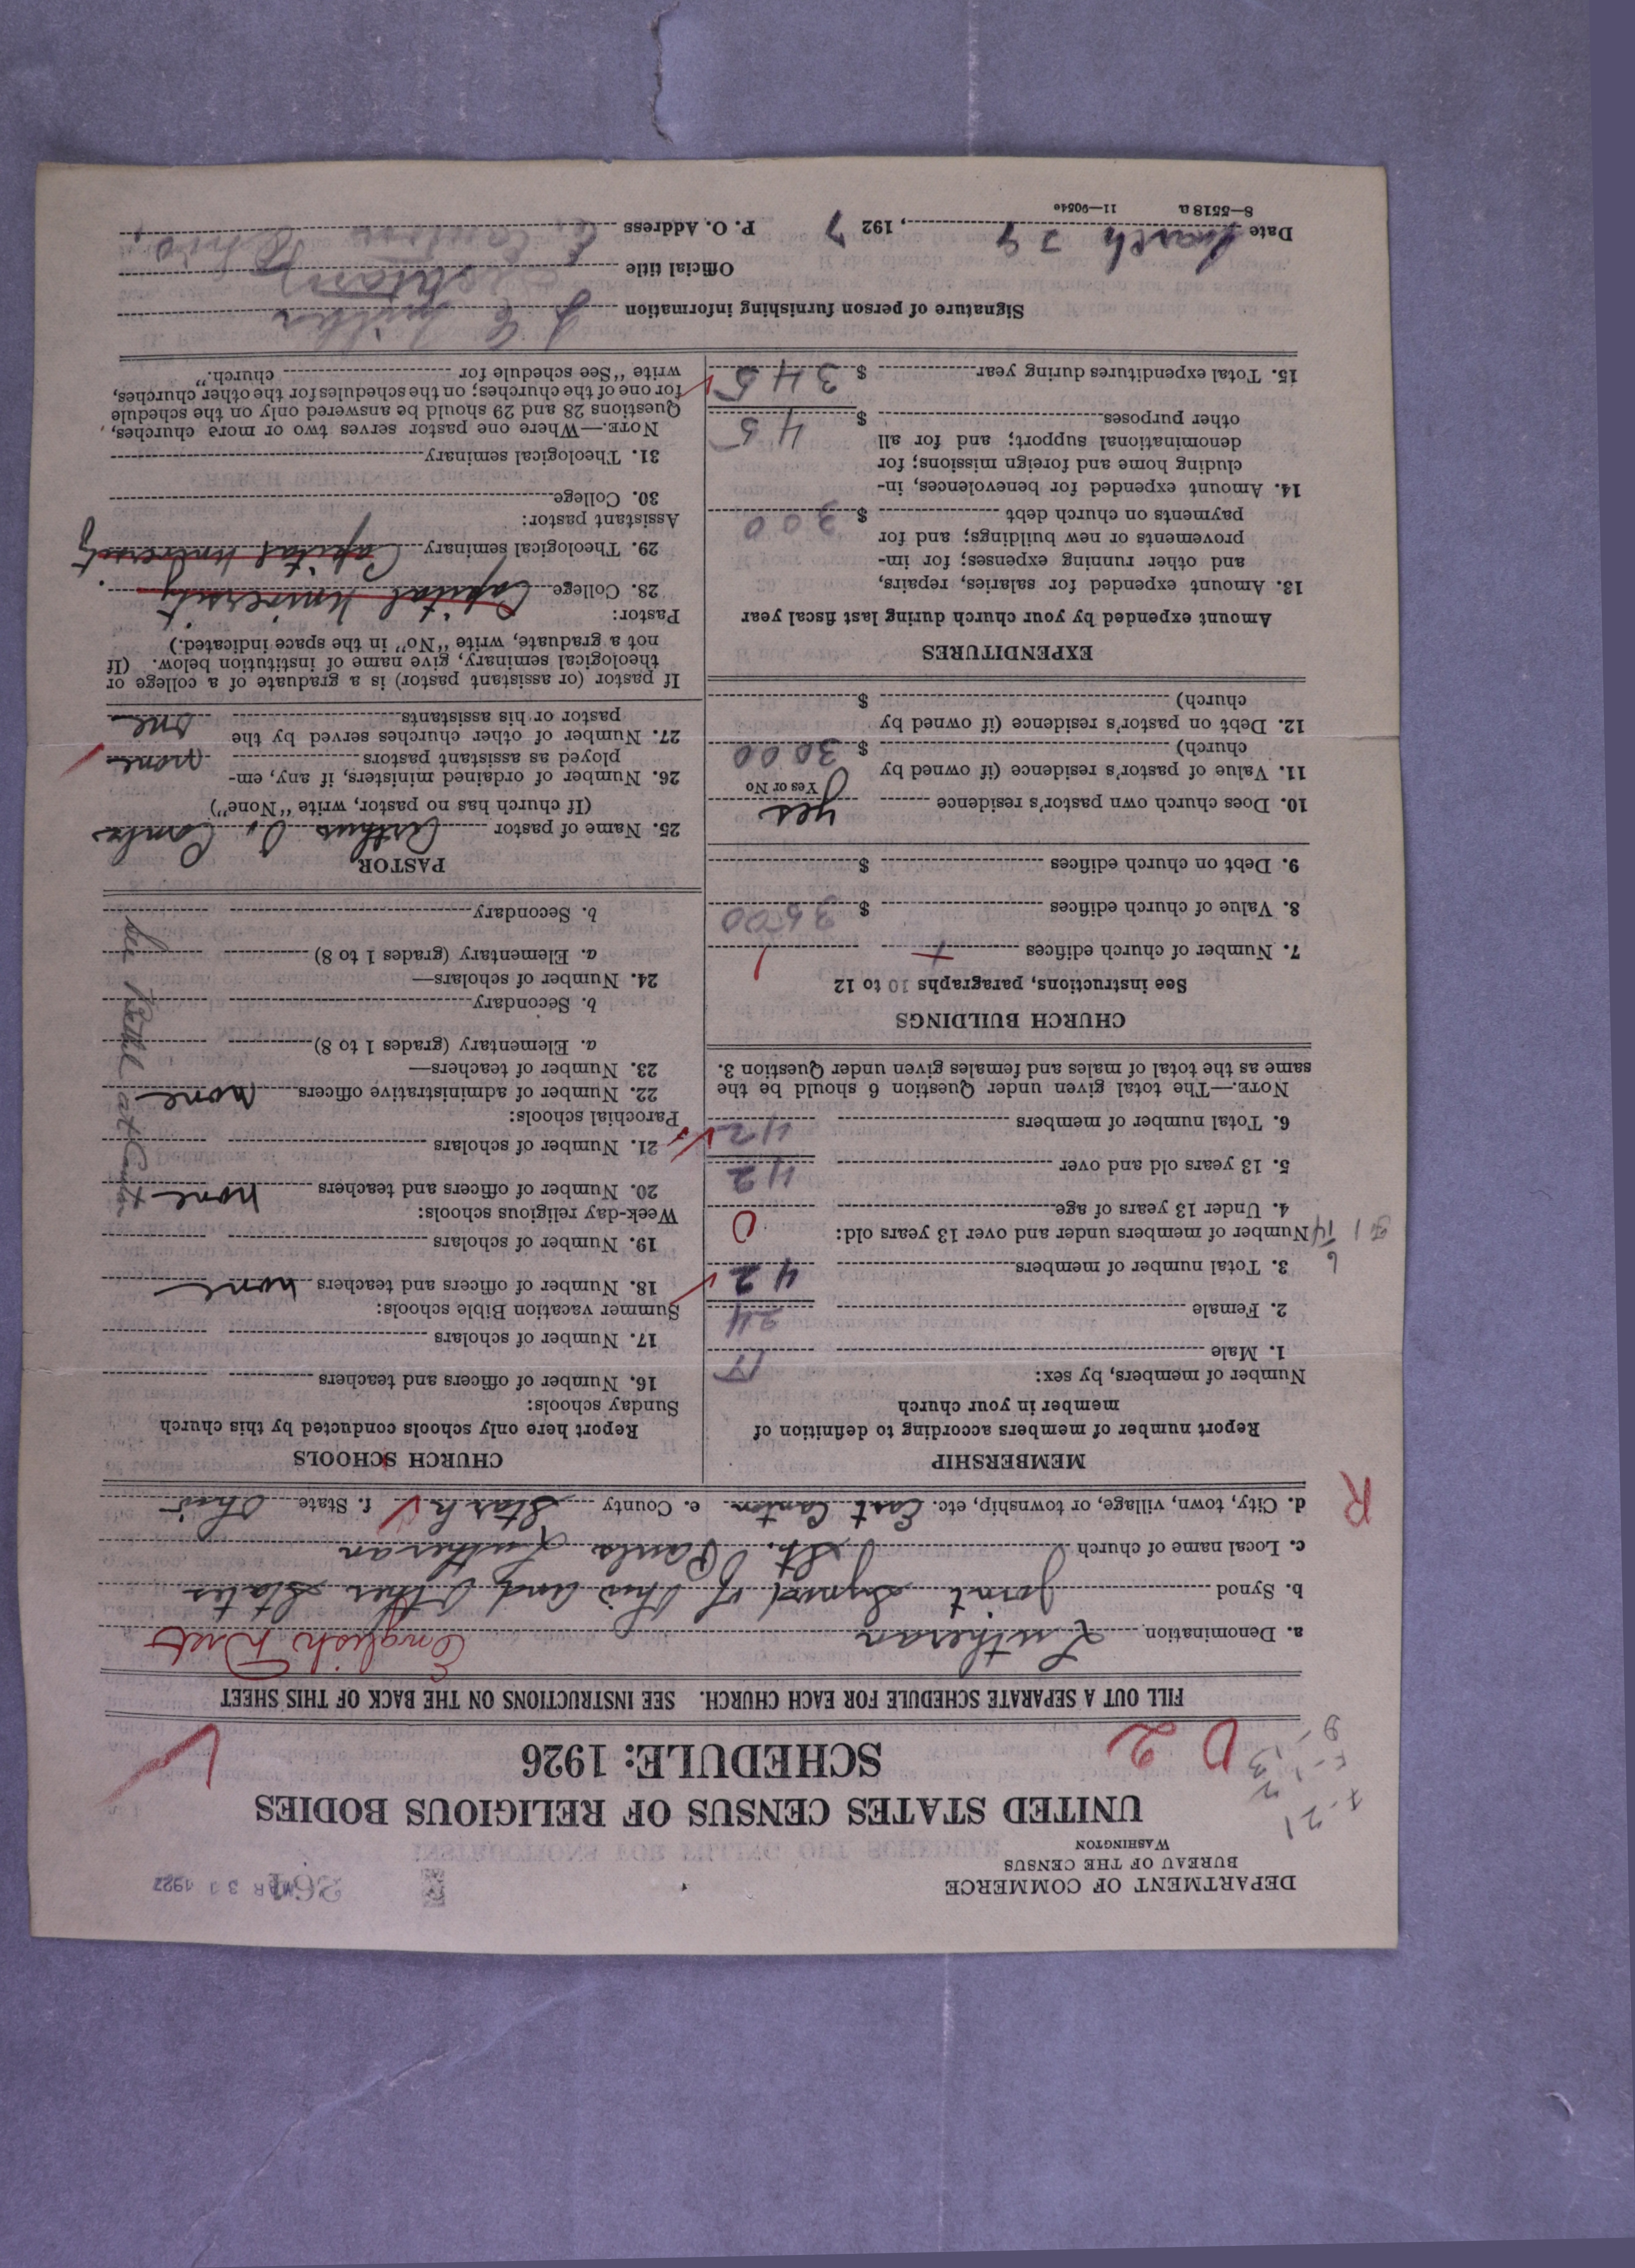 DEPARTMENT OF COMMERCE
BUREAU OF THE CENSUS
WASHINGTON
MAR 31 1927
UNITED STATES CENSUS OF RELIGIOUS BODIES
SCHEDULE: 1926
FILL OUT A SEPARATE SCHEDULE FOR EACH CHURCH. SEE INSTRUCTIONS ON THE BACK OF THIS SHEET
a. Denomination Lutheran English Dist
b. Synod Joint Synod of Ohio and Other States
c. Local name of church St. Pauls Lutheran
d. City, town, village, or township, etc. East Canton e. County Stark f. State Ohio
R
MEMBERSHIP
Report number of members according to definition of
member in your church
Number of members, by sex:
1. Male
2. Female 24
3. Total number of members 42
Number of members under and over 13 years old:
4. Under 13 years of age 0
5. 13 years old and over 42
6. Total number of members 42
NOTE.—The total given under Question 6 should be the
same as the total of males and females given under Question 3.
CHURCH BUILDINGS
See instructions, paragraphs 10 to 12
7. Number of church edifices 1
8. Value of church edifices $ 3500
9. Debt on church edifices $
10. Does church own pastor's residence yes
Yes or No
11. Value of pastor's residence (if owned by
church) $ 3000
12. Debt on pastor's residence (if owned by
church) $
EXPENDITURES
Amount expended by your church during last fiscal year
13. Amount expended for salaries, repairs,
and other running expenses; for im-
provements or new buildings; and for
payments on church debt $ 300
14. Amount expended for benevolences, in-
cluding home and foreign missions; for
denominational support; and for all
other purposes $ 45
15. Total expenditures during year $ 345
CHURCH SCHOOLS
Report here only schools conducted by this church
Sunday schools:
16. Number of officers and teachers
17. Number of scholars
Summer vacation Bible schools:
18. Number of officers and teachers none
19. Number of scholars
Week-day religious schools:
20. Number of officers and teachers none
21. Number of scholars
Parochial schools:
22. Number of administrative officers none
23. Number of teachers—
a. Elementary (grades 1 to 8)
b. Secondary
24. Number of scholars—
a. Elementary (grades 1 to 8)
b. Secondary
PASTOR
25. Name of pastor Arthur
(If church has no pastor, write "None")
26. Number of ordained ministers, if any, em-
ployed as assistant pastors none
27. Number of other churches served by the
pastor or his assistants one
If pastor (or assistant pastor) is a graduate of a college or
theological seminary, give name of institution below. (If
not a graduate, write "No" in the space indicated.)
Pastor:
28. College Capital University
29. Theological seminary Capital University
Assistant pastor:
30. College
31. Theological seminary
NOTE.—Where one pastor serves two or more churches,
Questions 28 and 29 should be answered only on the schedule
for one of the churches; on the schedules for the other churches,
write "See schedule for church."
Signature of person furnishing information
Official title
Date March 29, 1927 P. O. Address E. Canton Ohio,
8—5518a 11—9054e